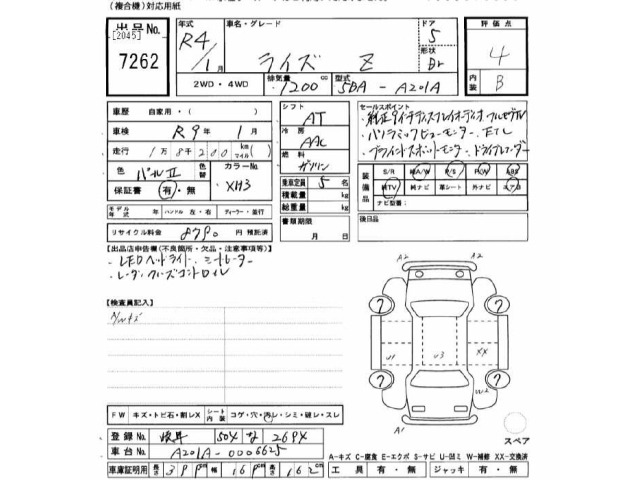 (複合機)対応用紙
出品No.
[2045]
7262
年式
R4/1月
車名・グレード
ライズ Z
ドア
5
形状
Br
評価点
4
内装
B
2WD・4WD
排気量
1200cc
型式
5BA-A201A
車歴 自家用・( )
車検 R9年1月
走行 1万8千200km(マイル)
色 パールⅡ
色替
カラーNo.
XH3
保証書 有・無
モデル年式 年 ハンドル 左・右 ディーラー・並行
リサイクル料金 8790円 預託済
シフト
AT
冷房
AAC
燃料
ガソリン
乗車定員 5名
積載量 kg
総重量 kg
書類期限
月 日
セールスポイント
・純正9インチディスプレイオーディオ フルセグTV
・パノラミックビューモニター、ETC
・ブラインドスポットモニター、ドライブレコーダー
装備品
S/R A/W P/S P/W ABS
純TV 純ナビ 革シート 外ナビ エアB
ナビ型番:
後日品
【出品店申告欄(不良箇所・欠品・注意事項等)】
・LEDヘッドライト、シートヒーター
・レーダークルーズコントロール
【検査員記入】
A2 A2
U1 U3 XX
A1
スペア
FW キズ・トビ石・割レX シート内装 コゲ・穴・汚レ・シミ・破レ・スレ
登録No. 岐阜 504 な 2694
車台No. A201A-0006625
車庫証明用 長さ 399cm 幅 169cm 高さ 162cm
A-キズ C-腐食 E-エクボ S-サビ U-凹ミ W-補修 XX-交換済
工具 有・無 ジャッキ 有・無